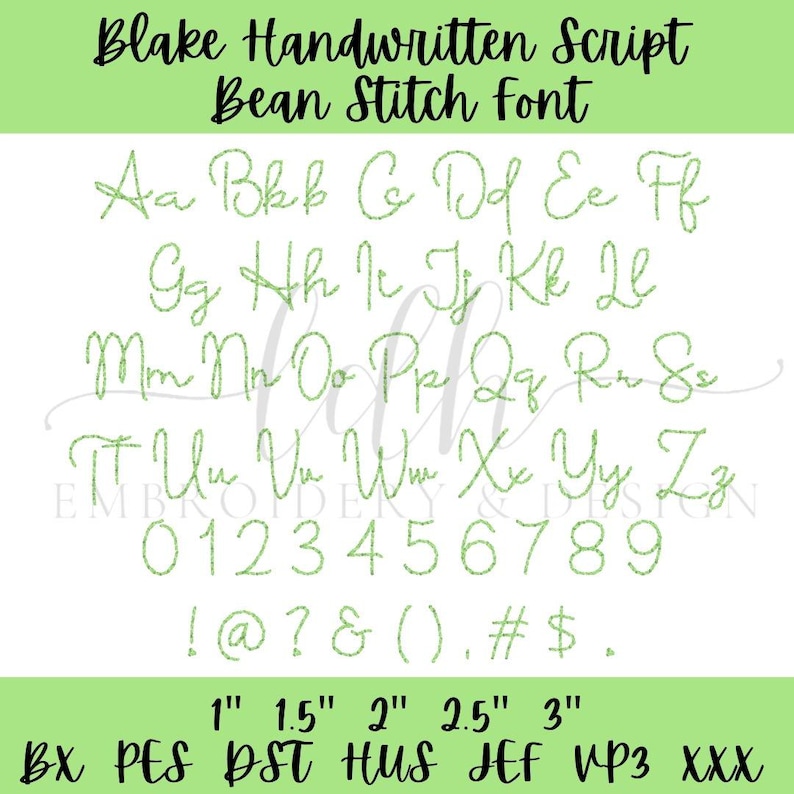 Blake Handwritten Script
Bean Stitch Font
Aa Bbb Cc Dd Ee Ff
Gg Hh Ii Jj Kk Ll
ldh
Mm Nn Oo Pp Qq Rr Ss
Tt Uu Vv Ww Xx Yy Zz
EMBROIDERY & DESIGN
0123456789
!@?&(),#$.
1" 1.5" 2" 2.5" 3"
BX PES DST HUS JEF VP3 XXX